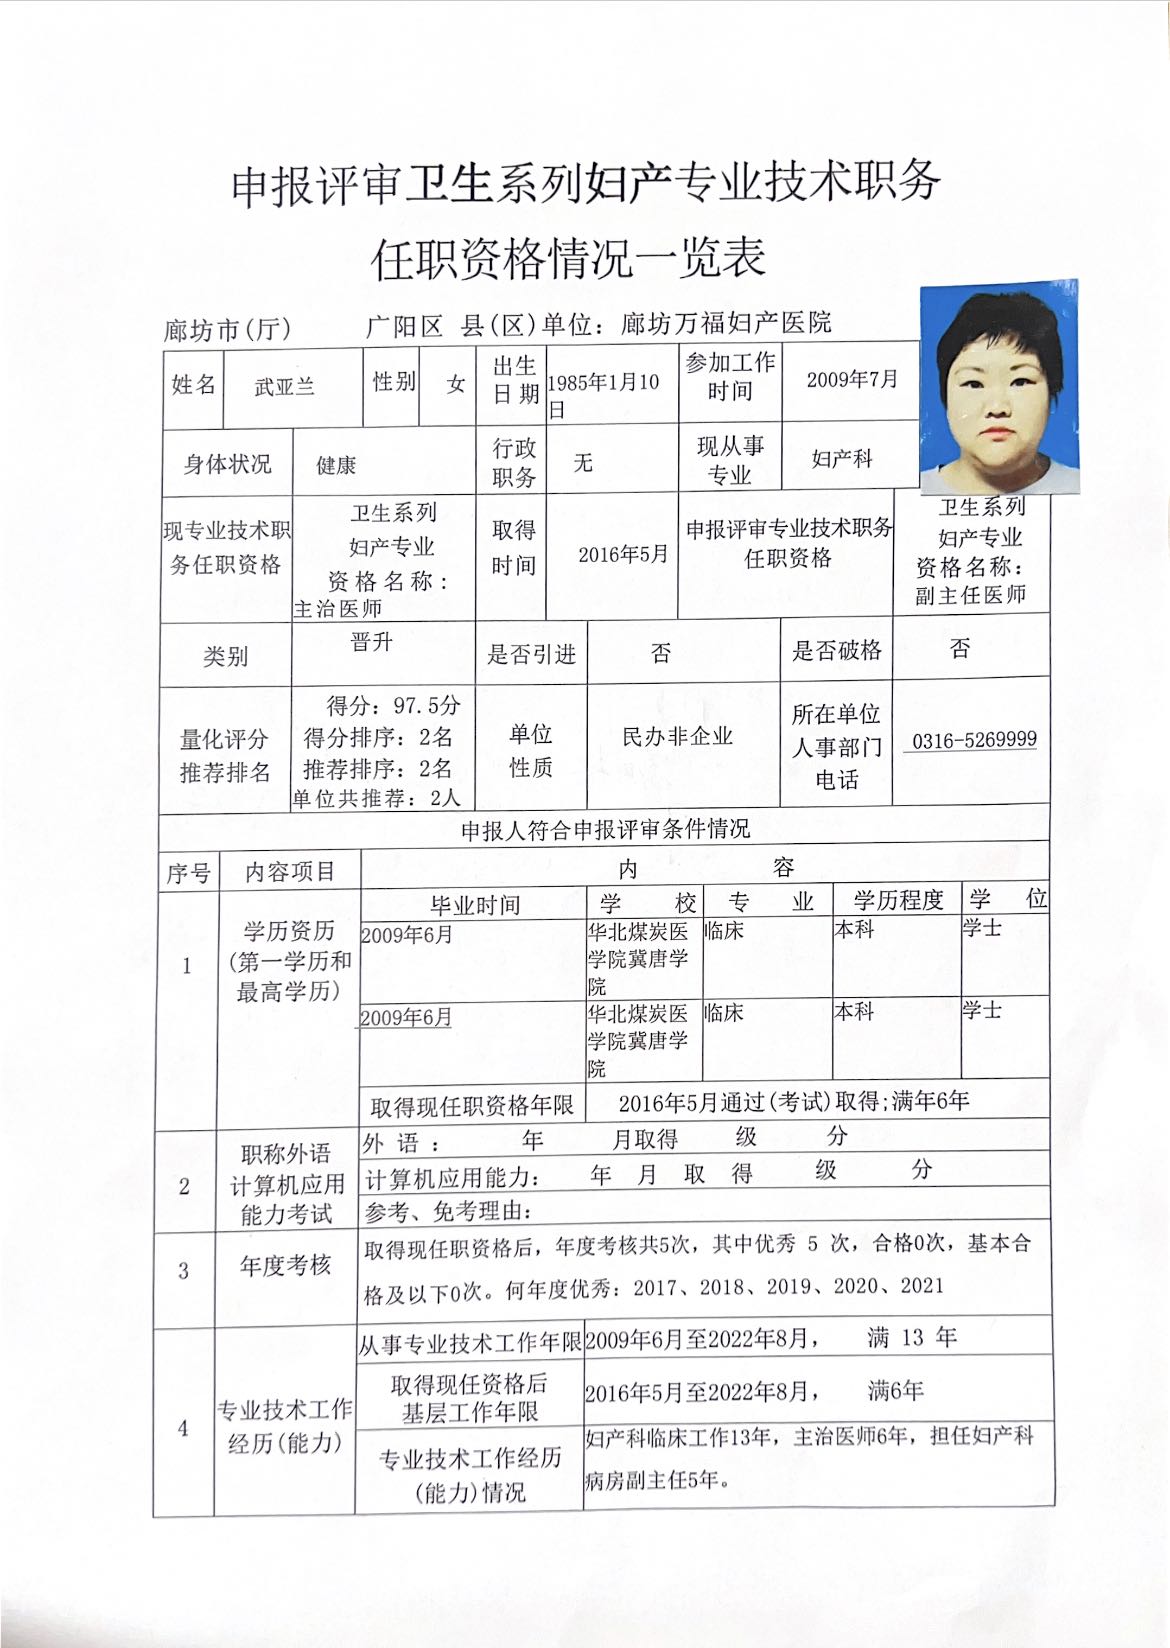 申报评审卫生系列妇产专业技术职务
任职资格情况一览表
廊坊市(厅) 广阳区 县(区)单位：廊坊万福妇产医院
姓名 武亚兰 性别 女 出生日期 1985年1月10日 参加工作时间 2009年7月
身体状况 健康 行政职务 无 现从事专业 妇产科
现专业技术职务任职资格 卫生系列 妇产专业 资格名称：主治医师 取得时间 2016年5月 申报评审专业技术职务任职资格 卫生系列 妇产专业 资格名称：副主任医师
类别 晋升 是否引进 否 是否破格 否
量化评分推荐排名 得分：97.5分 得分排序：2名 推荐排序：2名 单位共推荐：2人 单位性质 民办非企业 所在单位人事部门电话 0316-5269999
申报人符合申报评审条件情况
序号 内容项目 内 容
1 学历资历(第一学历和最高学历) 毕业时间 学 校 专 业 学历程度 学 位
2009年6月 华北煤炭医学院冀唐学院 临床 本科 学士
2009年6月 华北煤炭医学院冀唐学院 临床 本科 学士
取得现任职资格年限 2016年5月通过(考试)取得;满年6年
2 职称外语计算机应用能力考试 外 语： 年 月取得 级 分
计算机应用能力： 年 月 取 得 级 分
参考、免考理由：
3 年度考核 取得现任职资格后，年度考核共5次，其中优秀 5 次，合格0次，基本合
格及以下0次。何年度优秀：2017、2018、2019、2020、2021
4 专业技术工作经历(能力) 从事专业技术工作年限 2009年6月至2022年8月， 满 13 年
取得现任资格后基层工作年限 2016年5月至2022年8月， 满6年
专业技术工作经历(能力)情况 妇产科临床工作13年，主治医师6年，担任妇产科
病房副主任5年。